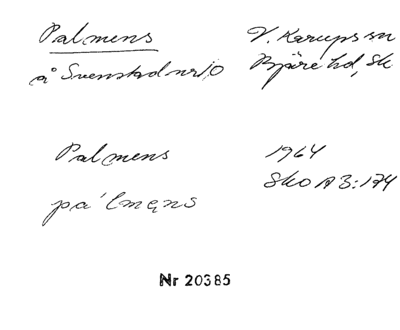 Palmens V. Karups sn
å Svenstad nr 10 Bjäre hd, Sk
Palmens 1964
Sko A 3:174
pa´lmens
Nr 20385